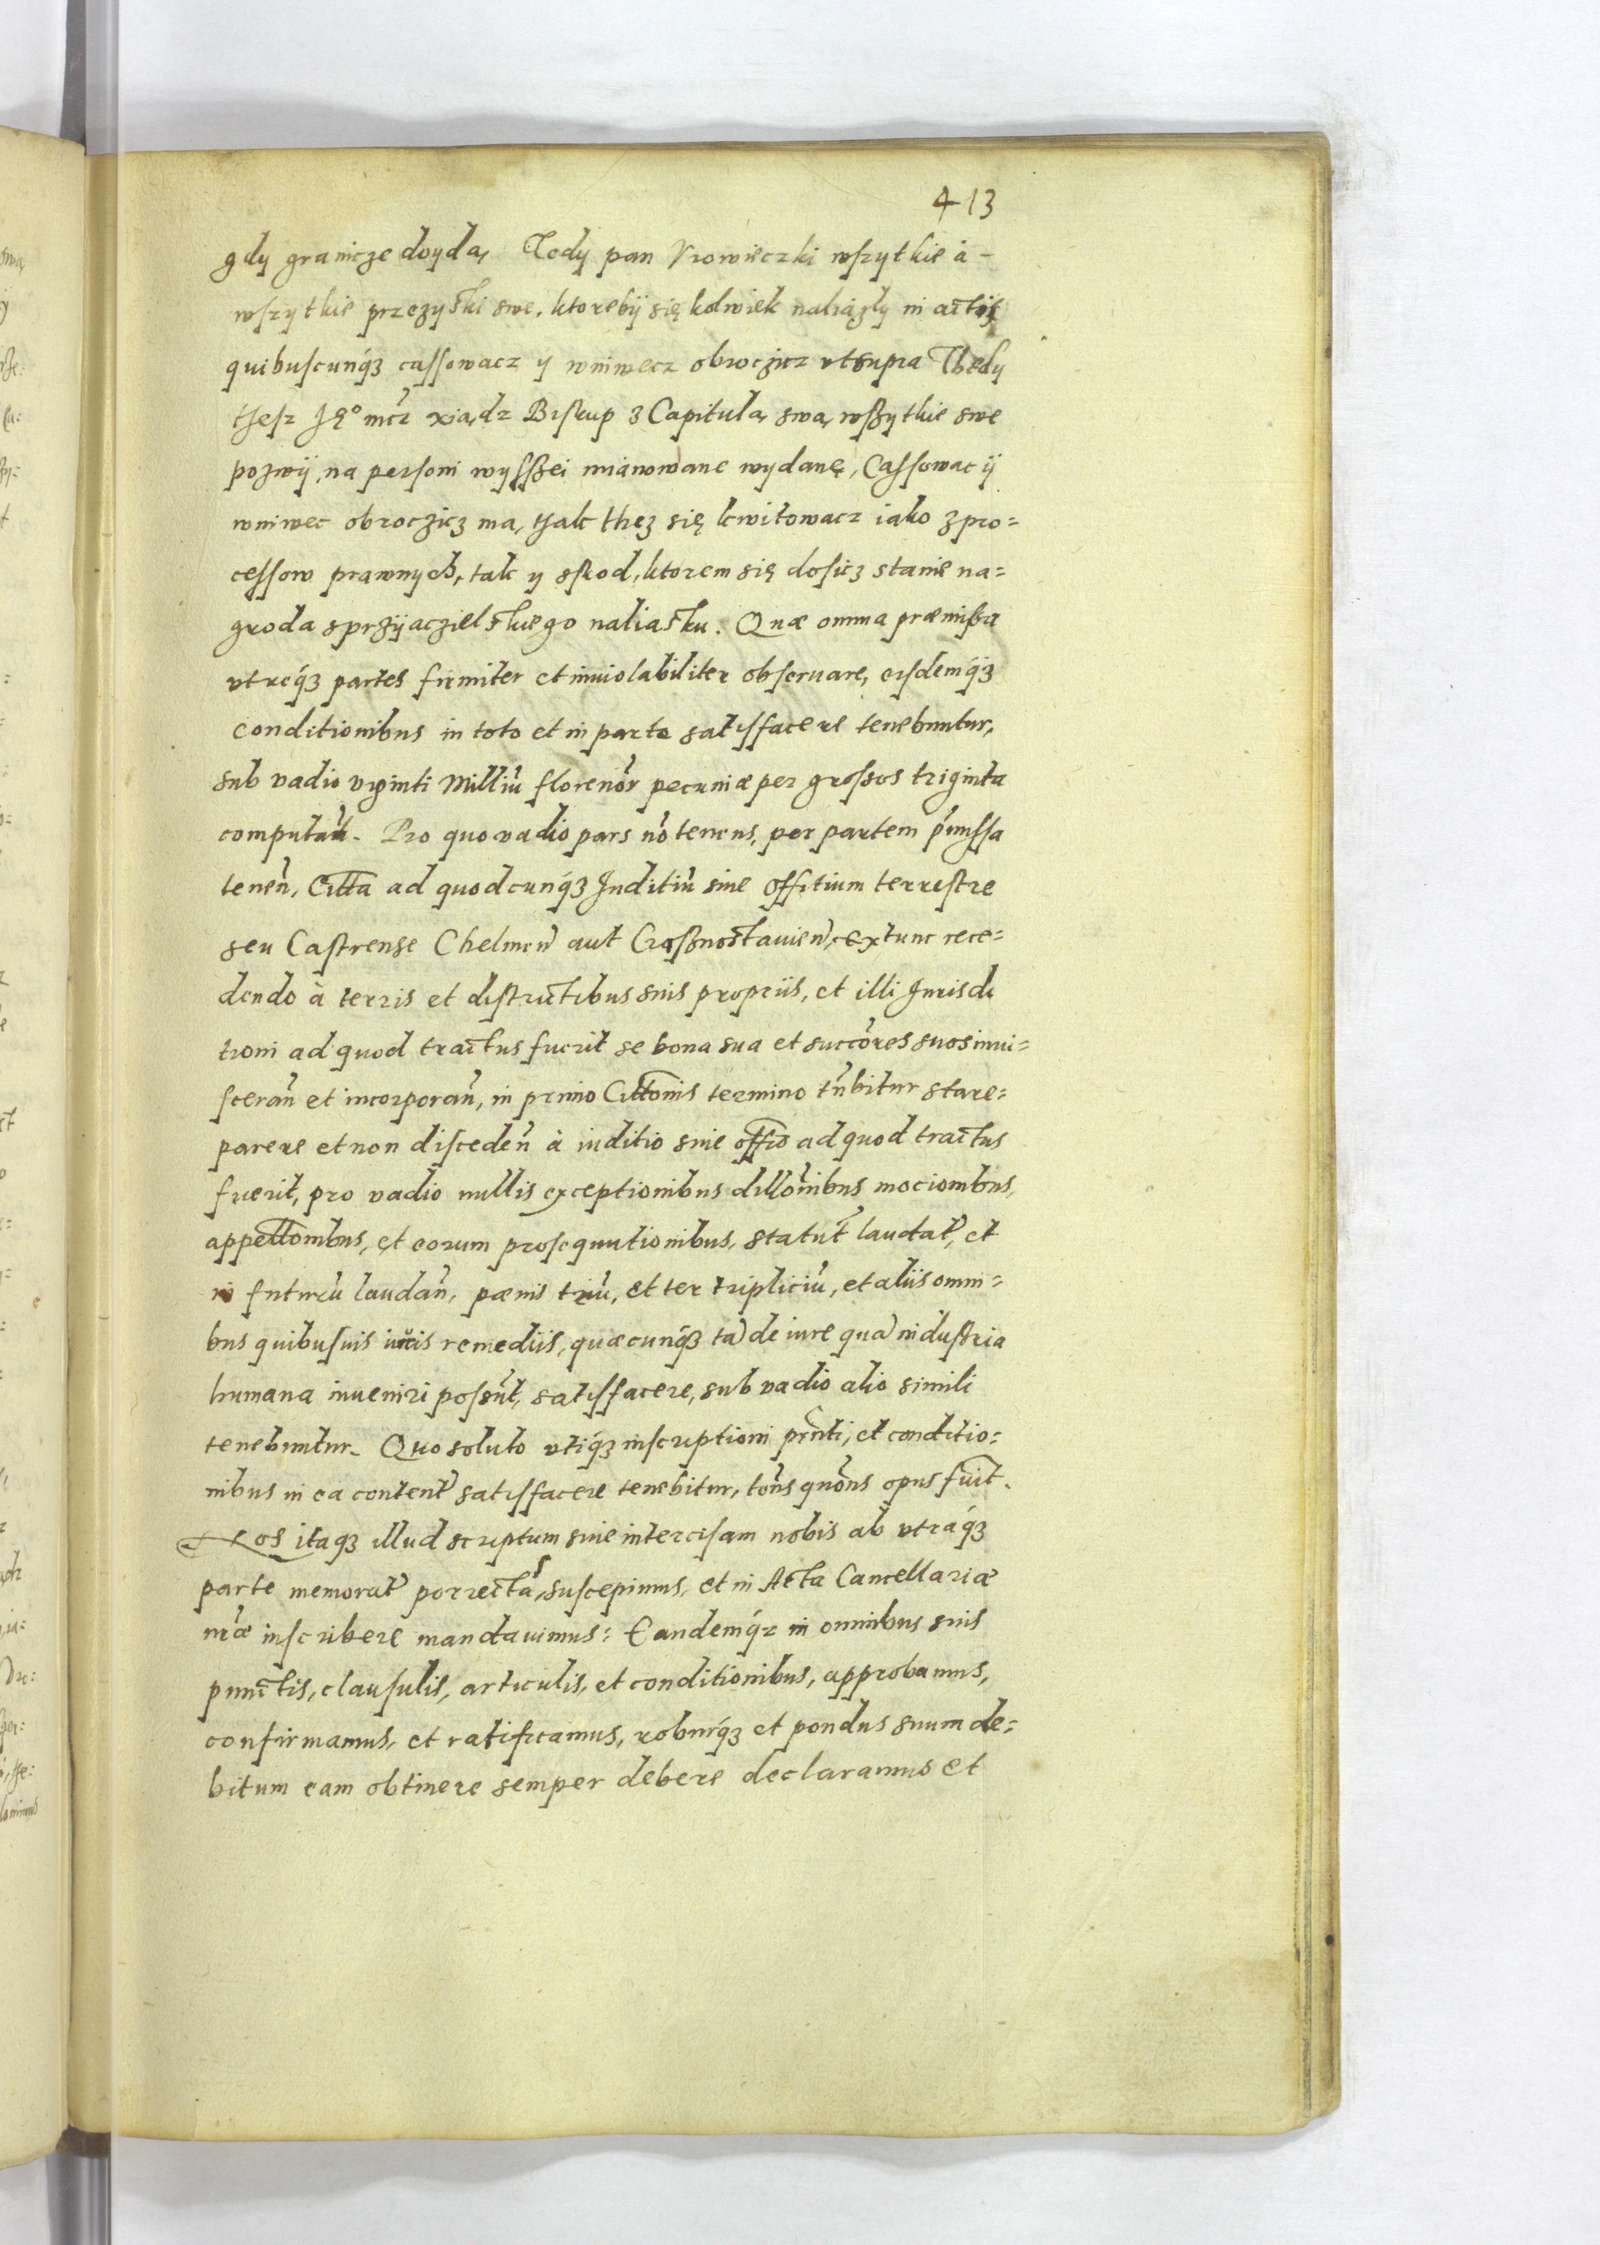 413
gdy granicze doyda, Tedy pan Vrowieczki wszytkie à -
wszytkie przezyski swe, ktorebÿ się kolwiek naliązly in actis
quibuscunq́ꝫ cassowacz y wniwecz obroczicz vt supra Thedy
thesz Jeº mcz xiądz Biskup z Capitulą swą, wszytkie swe
pozwÿ, na personi wyszszei mianowane wydanę, Cassowac ÿ
wniwec obroczicz ma, thak thez się kwitowacz iako z pro=
cessow prawnych, tak y skod, ktorem się dosicz stanie na=
groda sprzÿaczielskiego naliasku. Quæ omnia præmissa
vtreq́ꝫ partes firmiter et inuiolabiliter obseruare, eisdemq́ꝫ
conditionibus in toto et in parte satisfacere tenebuntur,
sub vadio viginti Milliũ florenor̃ pecuniæ per grossos triginta
computañ. Pro quo vadio pars nõ tenens, per partem p̃missa
teneñ, Citta ad quodcunq́ꝫ Juditiũ siue offitium terrestre
seu Castrense Chelmeñ aut Crassnostauieñ, ex tunc rece=
dendo à terris et districtibus suis propriis, et illi Jurisdi
tioni ad quod tractus fuerit se bona sua et succõres suos inui=
scerañ et incorporañ, in primo Cittonis termino tñbitur stare=
parere et non discedeñ à iuditio siue offio ad quod tractus
fuerit, pro vadio nullis exceptionibus dillõnibus mocionibus,
appellonibus, et eorum prosequutionibus, statut̃ laudat̃, et
in futurũ laudañ, pænis triũ, et ter tripliciũ, et aliis omni=
bus quibusuis iuris remediis, quæcunq́ꝫ tã de iure quã industria
humana inueniri possũt, satisfacere, sub vadio alio simili
tenebuntur. Quo soluto vtiq́ꝫ inscriptioni pñti, et conditio=
nibus in ea content̃ satisfacere tenebitur, tõns quõns opus fuit.
Nos itaqꝫ illud scriptum siue intercisam nobis ab vtraq́ꝫ
parte memorat̃ porrectã, suscepimus, et in Acta Cancellariæ
nr̃æ inscribere mandauimus: Eandemq́ꝫ in omnibus suis
punctis, clausulis, articulis, et conditionibus, approbamus,
confirmamus, et ratificamus, roburq́ꝫ et pondus suum de=
bitum eam obtinere semper debere declaramus et